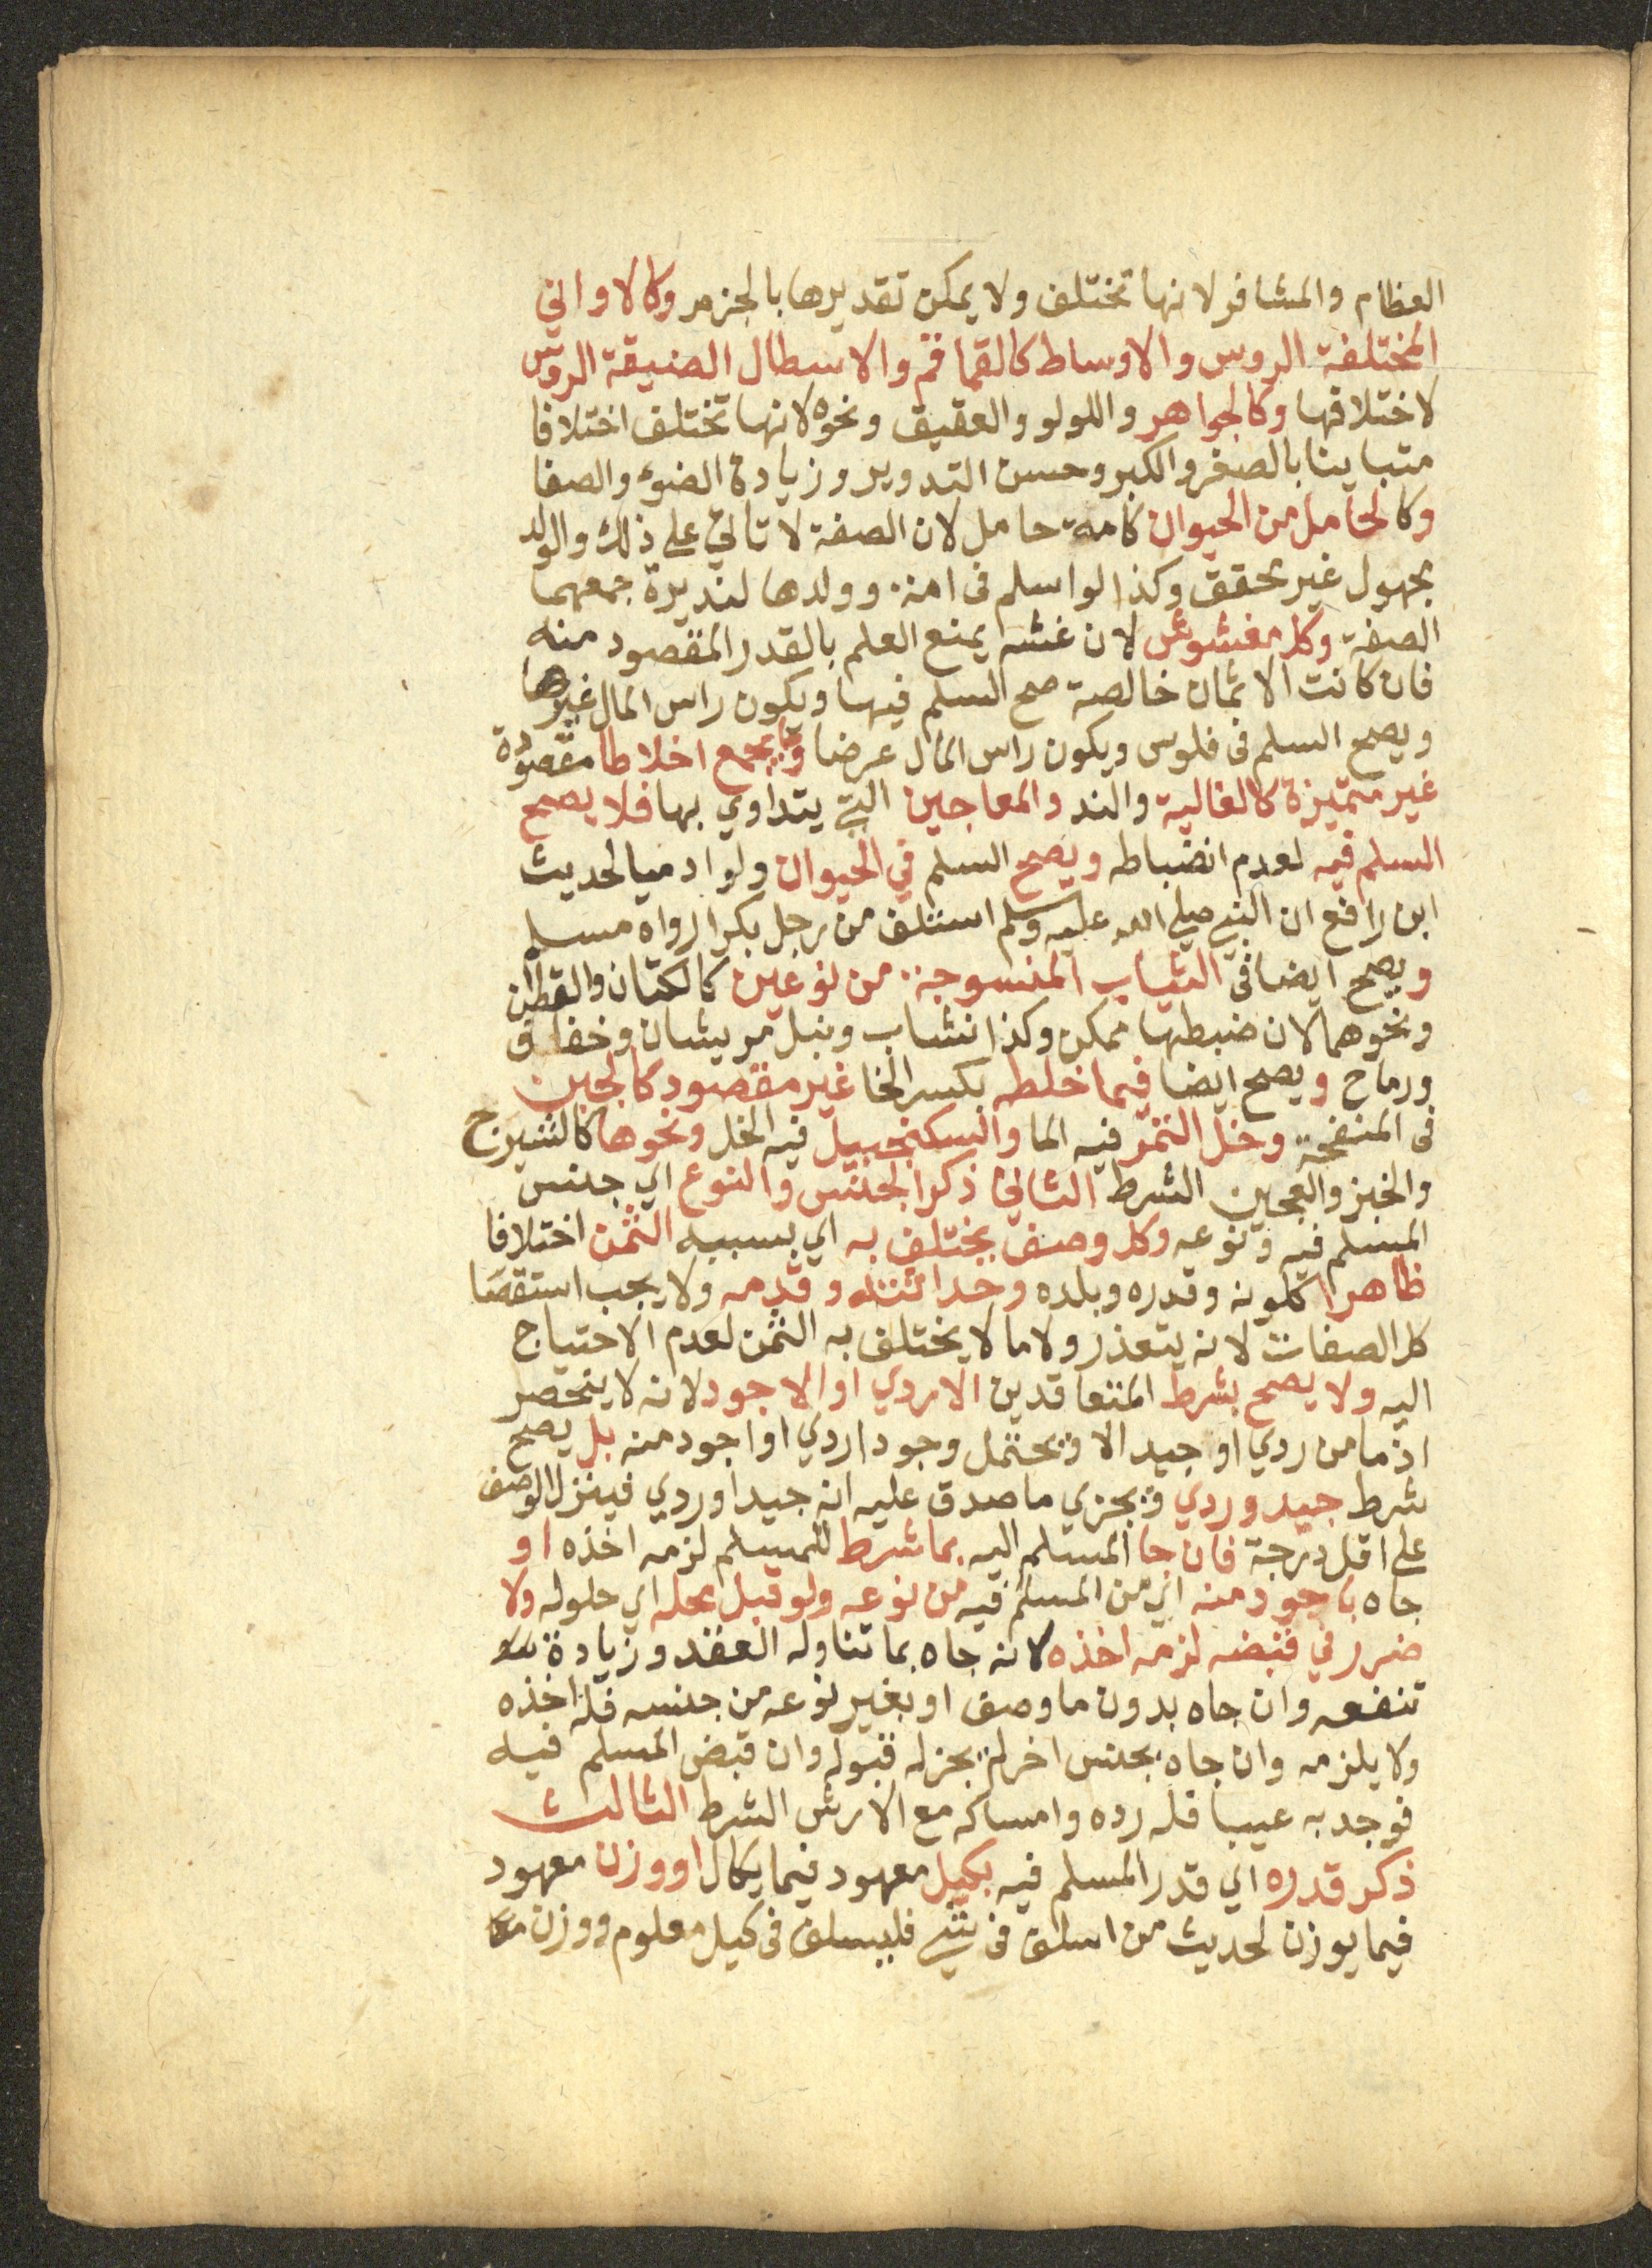 العظام والمشافر لانها تختلف ولا يمكن تقديرها بالجزم وكالاواني
المختلفة الروس والاوساط كالقماقم والاسطال الضيقة الروس
لاختلافها وكالجواهر واللولو والعقيق ونحوه لانها تختلف اختلافا
متباينا بالصغر والكبر وحسن التدوير وزيادة الضوء والصفا
وكالحامل من الحيوان كامة حامل لان الصفة لا تاتي على ذلك والولد
مجهول غير محقق وكذا لو اسلم في امة وولدها لندرة جمعهما
الصفة وكل مغشوش لان غشه يمنع العلم بالقدر المقصود منه
فان كانت الاثمان خالصة صح السلم فيها ويكون راس المال غيرها
ويصح السلم في فلوس ويكون راس المال عرضا وما يجمع اخلاطا مقصودة
غير متميزة كالغالية والند والمعاجين التي يتداوي بها فلا يصح
السلم فيه لعدم انضباطه ويصح السلم في الحيوان ولو ادميا لحديث
ابن رافع ان النبي صلى الله عليه وسلم استلف من رجل بكرا رواه مسلم
ويصح ايضا في الثياب المنسوجة من نوعين كالكتان والقطن
ونحوهما لان ضبطها ممكن وكذا نشاب ونبل مريشان وخفاف
ورماح ويصح ايضا فيما خلطه بكسر الخا غير مقصود كالجبن
في المنفحة وخل التمر فيه الما والسكنجبيل فيه الخل ونحوها كالشيرج
والخبز والعجين الشرط الثاني ذكر الجنس والنوع اي جنس
المسلم فيه ونوعه وكل وصف يختلف به اي بسببه الثمن اختلافا
ظاهرا كلونه وقدره وبلده وحداثته وقدمه ولا يجب استقصا
كل الصفات لانه يتعذر ولا ما لا يختلف به الثمن لعدم الاحتياج
اليه ولا يصح بشرط المتعاقدين الاردي او الاجود لانه لا ينحصر
اذ ما من ردي او جيد الا ويحتمل وجود اردي او اجود منه بل يصح
شرط جيد وردي ويجزي ما صدق عليه انه جيد او ردي فينزل الوصف
على اقل درجة فان جا المسلم اليه بما شرط للمسلم لزمه اخذه او
جاه باجود منه اي من المسلم فيه من نوعه ولو قبل محله اي حلوله ولا
ضرر في قبضه لزمه اخذه لانه جاه بما تناوله العقد وزيادة
تنفعه وان جاه بدون ما وصف او بغير نوعه من جنسه فله اخذه
ولا يلزمه وان جاه بجنس اخر لم يجز له قبوله وان قبض المسلم فيه
فوجد به عيبا فله رده وامساكه مع الارش الشرط الثالث
ذكر قدره اي قدر المسلم فيه بكيل معهود فيما يكال او وزن معهود
فيما يوزن لحديث من اسلف في شي فليسلف في كيل معلوم ووزن